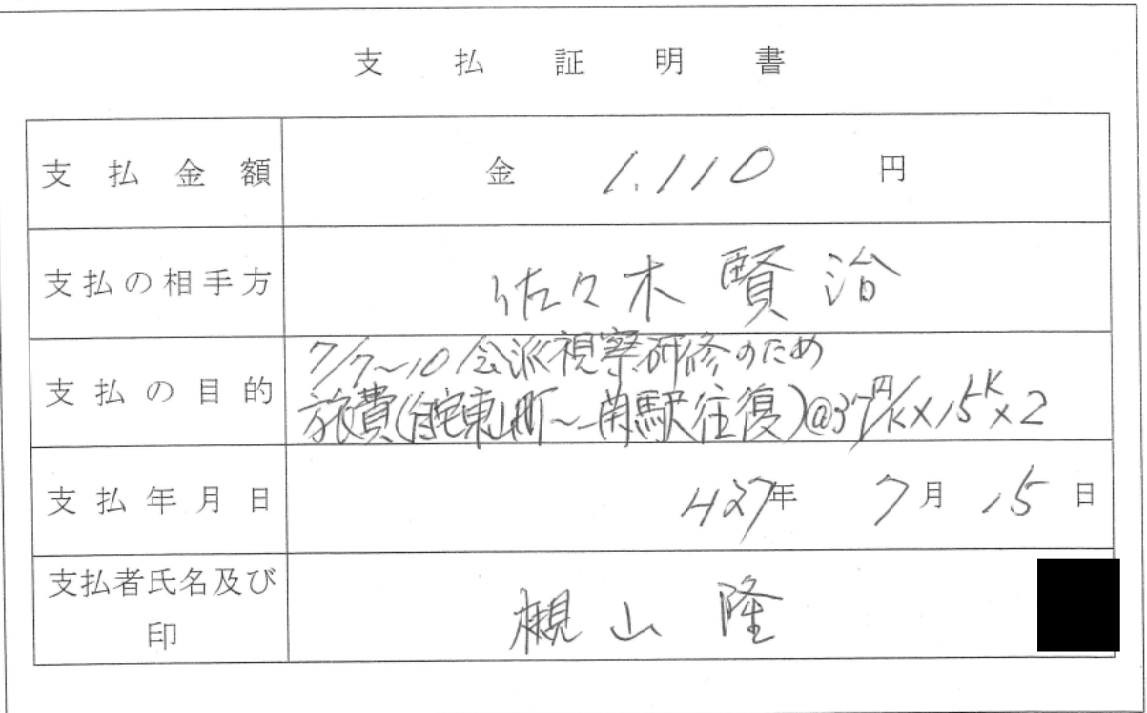 支払証明書
支払金額 金 1.110 円
支払の相手方 佐々木 賢治
支払の目的 7/7~10 会派視察研修のため
旅費(自宅東山町~一関駅往復)@37円/K×15K×2
支払年月日 H27年 7月 15日
支払者氏名及び 槻山 隆
印